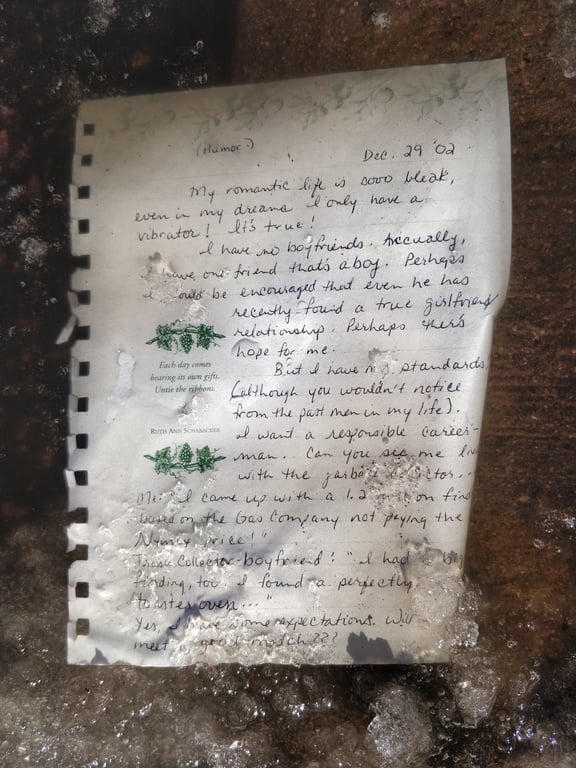 (Humor?)
Dec. 29 '02
My romantic life is sooo bleak,
even in my dreams I only have a
vibrator! It's true!
I have no boyfriends. Accually,
I have one friend that's a boy. Perhaps
I could be encouraged that even he has
recently found a true girlfriend
relationship. Perhaps there's
hope for me.
But I have my standards
(although you wouldn't notice
from the past men in my life).
I want a responsible career-
man. Can you see me
with the garbage collector...
Me: "I came up with a 1.2 million find
based on the Gas Company not paying the
Nymex price!"
Trash Collector-boyfriend: "I had a
finding, too. I found a perfectly
toaster oven..."
Yes, I have some expectations. Will
meet a good match???
Each day comes
bearing its own gifts.
Untie the ribbons.
RUTH ANN SCHABACKER